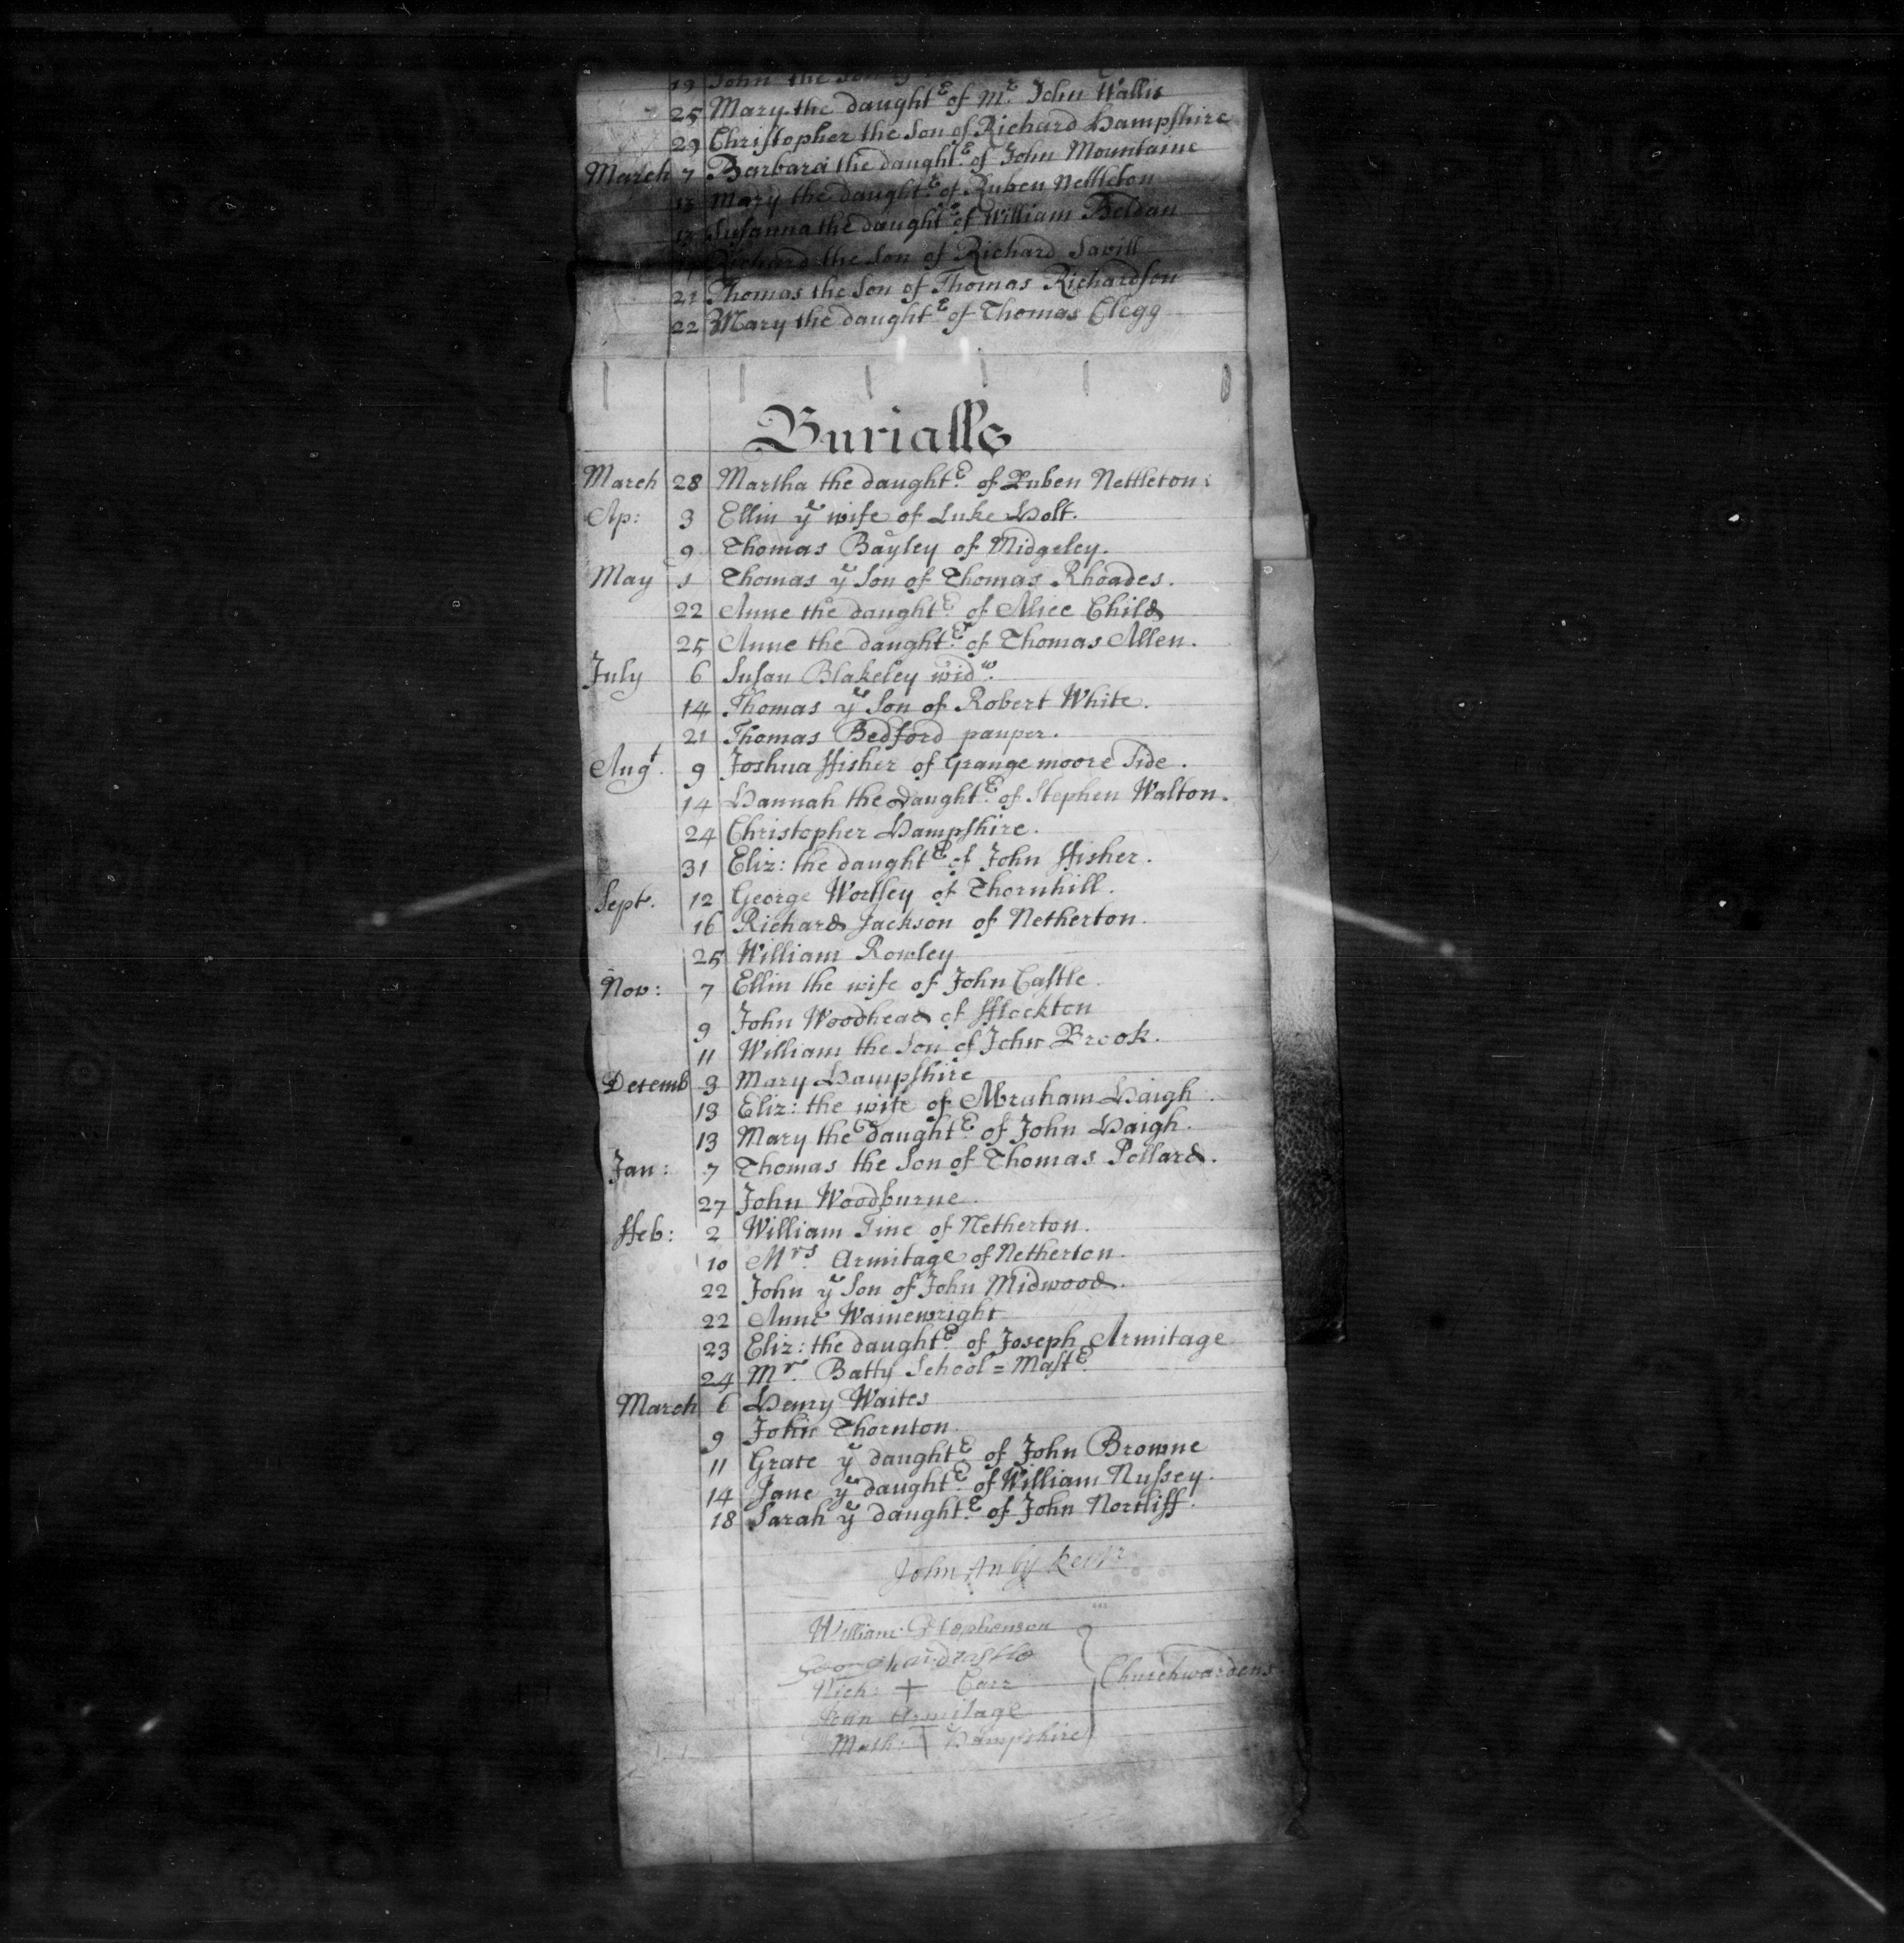 19 John the Son of
25 Mary the daughtr. of Mr. John Wallis
29 Christopher the Son of Richard Hampshire
March 7 Barbara the daughtr. of John Mountaine
13 Mary the daughtr. of Ruben Nettleton
13 Susanna the daughtr. of William Beldan
Richard the Son of Richard Savill
21 Thomas the Son of Thomas Richardson
22 Mary the daughtr. of Thomas Clegg
Burialls
March 28 Martha the daughtr. of Ruben Nettleton:
Ap: 3 Ellin ye wife of Luke Holt.
9 Thomas Bayley of Midgeley.
May 1 Thomas ye Son of Thomas Rhoades.
22 Anne the daughtr. of Alice Child
25 Anne the daughtr. of Thomas Allen.
July 6 Susan Blakeley widw.
14 Thomas ye Son of Robert White.
21 Thomas Bedford pauper.
Augt. 9 Joshua ffisher of Grange moore Side.
14 Hannah the daughtr. of Stephen Walton.
24 Christopher Hampshire.
31 Eliz: the daughtr. of John ffisher.
Sept. 12 George Wortley of Thornhill.
16 Richard Jackson of Netherton.
25 William Rowley
Nov: 7 Ellin the wife of John Castle.
9 John Woodhead of fflockton
11 William the Son of John Brook.
Decemb 3 Mary Hampshire
13 Eliz: the wife of Abraham Haigh.
13 Mary the daughtr. of John Haigh.
Jan: 7 Thomas the Son of Thomas Pollard.
27 John Woodburne.
ffeb: 2 William Tine of Netherton.
10 Mrs. Armitage of Netherton.
22 John ye Son of John Midwood.
22 Anne Wainewright
23 Eliz: the daughtr. of Joseph Armitage
24 Mr. Batty School=Mastr.
March 6 Henry Waites
9 John Thornton.
11 Grace ye daughtr. of John Browne
14 Jane ye daughtr. of William Nussey.
18 Sarah ye daughtr. of John Nortliff.
John
William Stephenson
hardcastle
Rich: + Carr
John Armitage
Math: Hampshire
Churchwardens